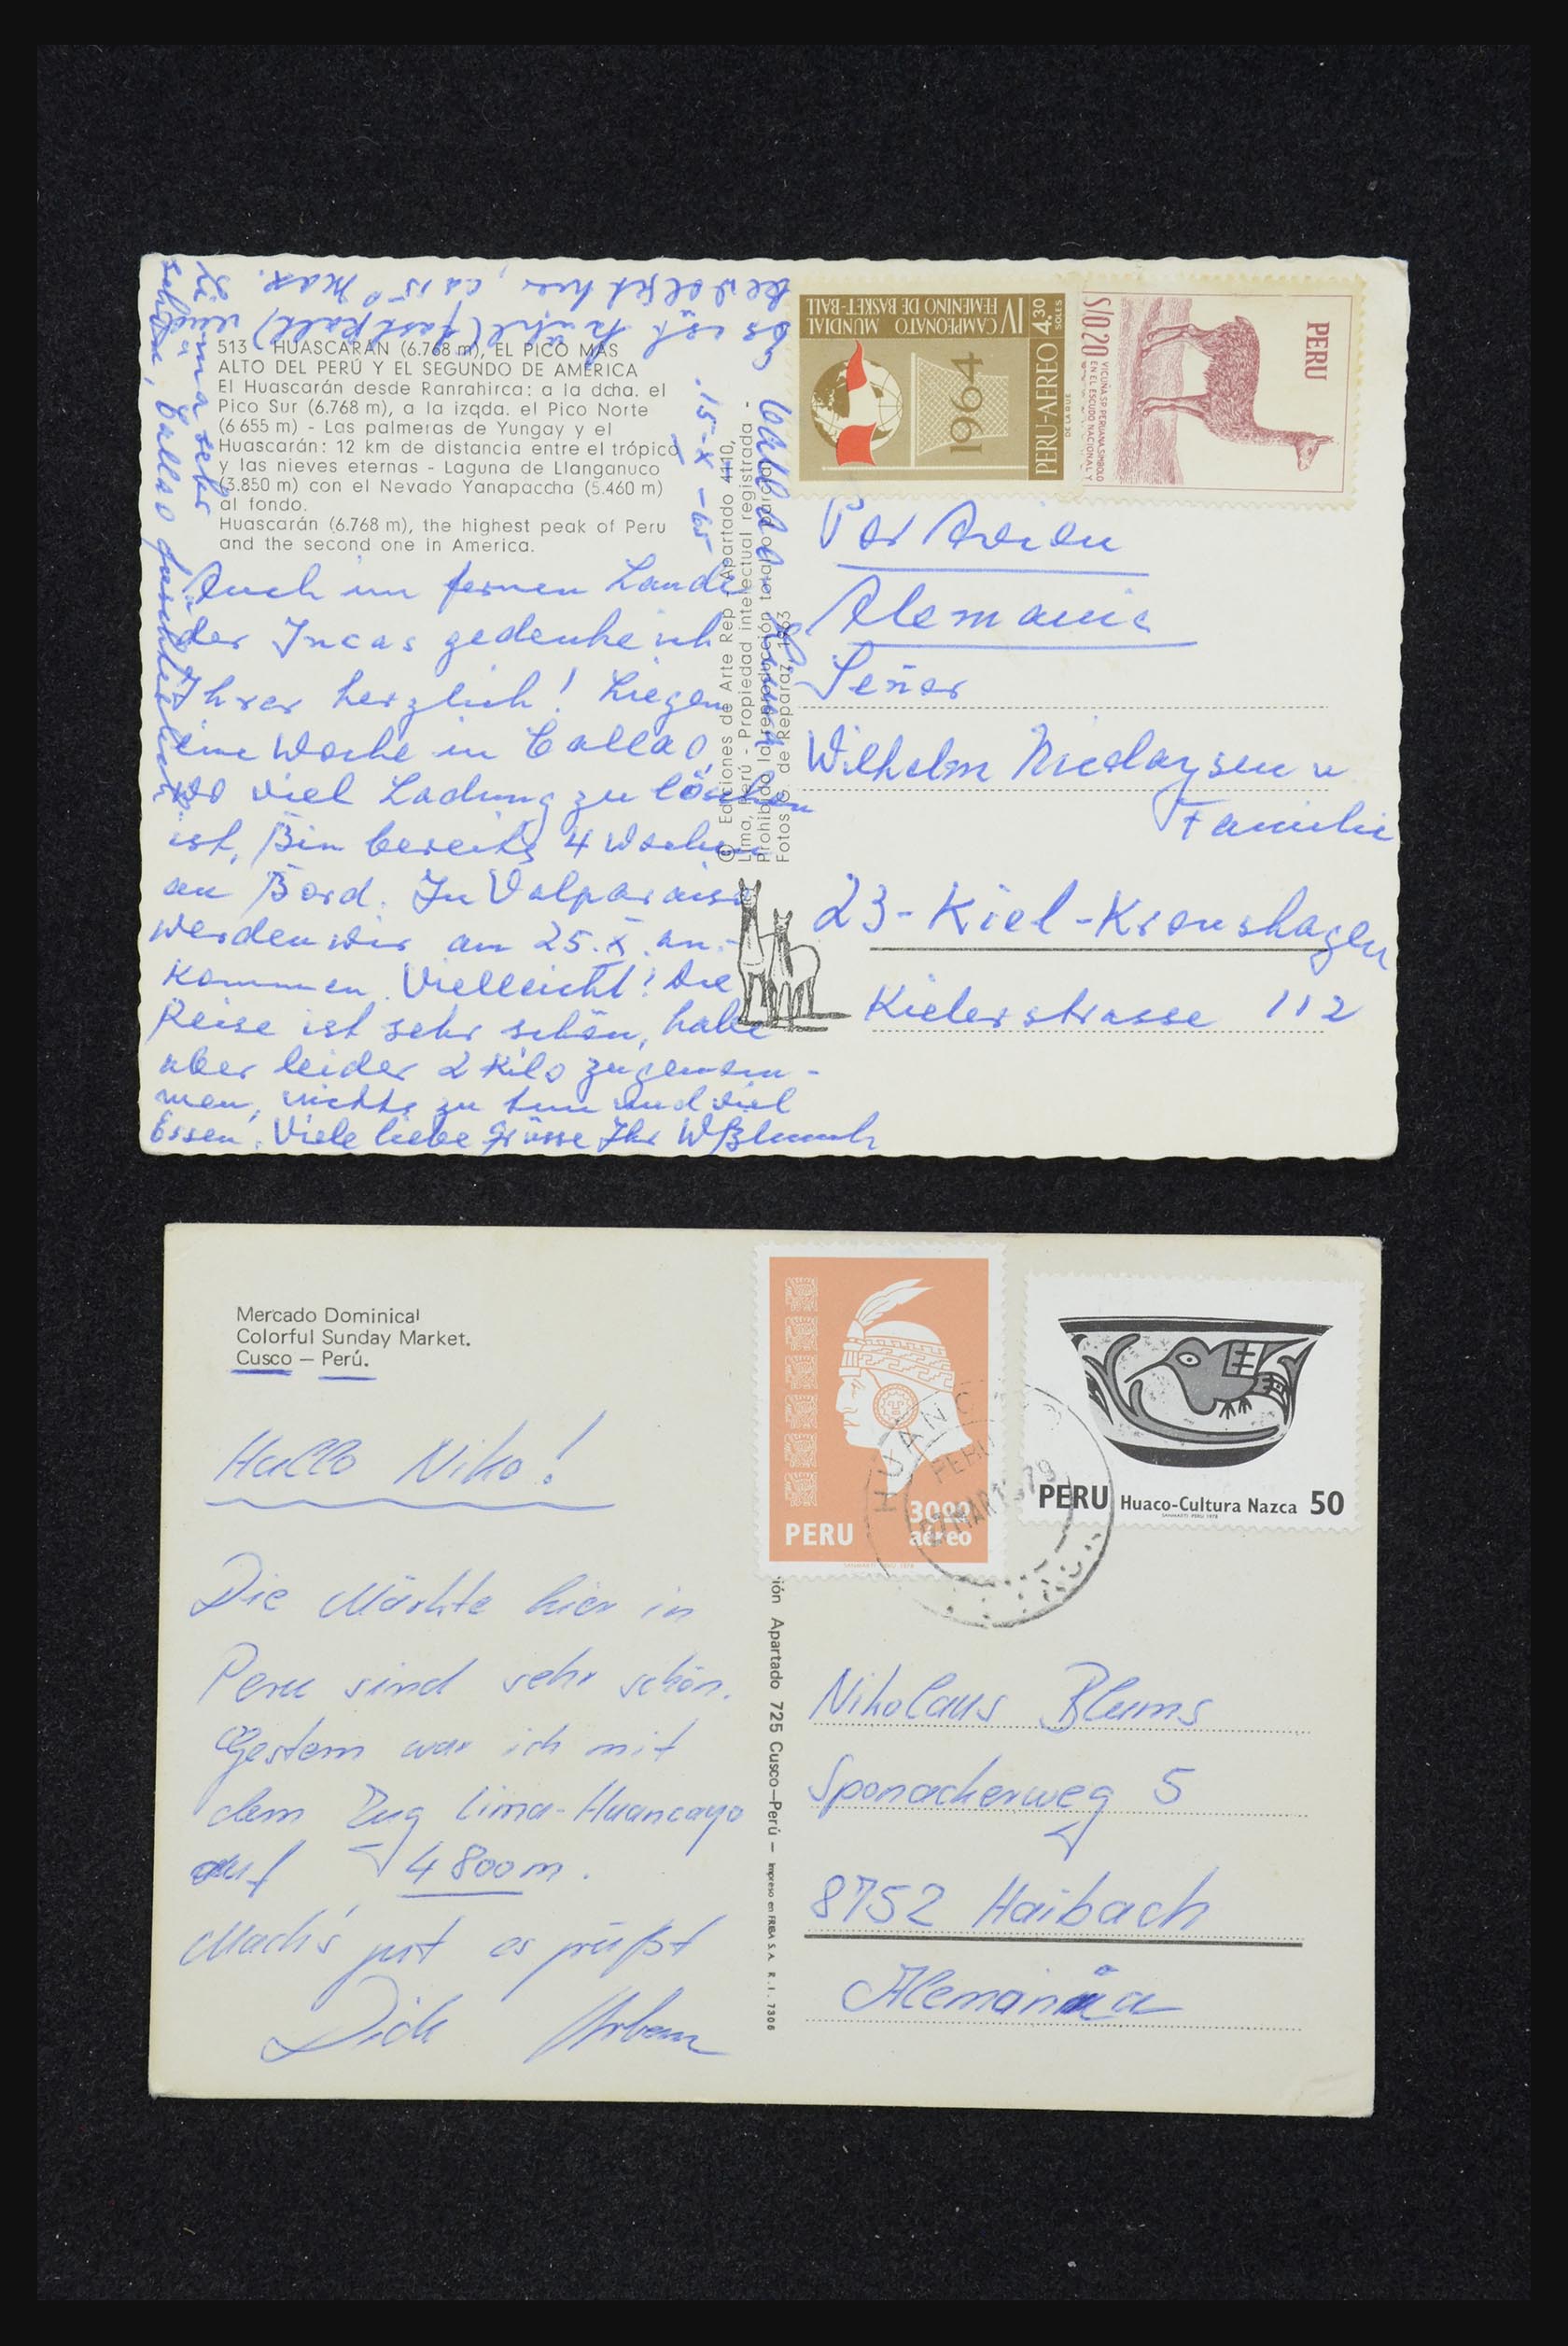 513 - HUASCARÁN (6.768 m), EL PICO MÁS
ALTO DEL PERÚ Y EL SEGUNDO DE AMÉRICA
El Huascarán desde Ranrahirca: a la dcha. el
Pico Sur (6.768 m), a la izqda. el Pico Norte
(6.655 m) - Las palmeras de Yungay y el
Huascarán: 12 km de distancia entre el trópico
y las nieves eternas - Laguna de Llanganuco
(3.850 m) con el Nevado Yanapaccha (5.460 m)
al fondo.
Huascarán (6.768 m), the highest peak of Peru
and the second one in America.
Callao
15-X-65
Auch im fernen Lande
der Incas gedenke ich
Ihrer herzlich! Liegen
eine Woche in Callao,
wo viel Ladung zu löschen
ist, Bin bereits 4 Wochen
an Bord. In Valparaiso
werden wir am 25.X. an-
kommen. Vielleicht! Die
Reise ist sehr schön, habe
aber leider 2 Kilo zugenom-
men, nichts zu tun und viel
Essen. Viele liebe Grüsse Ihr
es ist kühl (fast kalt) und
bewölkt hier, ca 15° Max.
Lima sehr
schön, Callao
© Ediciones de Arte Rep - Apartado 4110,
Lima, Perú - Propiedad intelectual registrada -
Prohibida la reproducción total o parcial
Fotos G. de Reparaz, 1963
IV CAMPEONATO MUNDIAL
FEMENINO DE BASKET-BALL
1964
PERU-AEREO 4.30
SOLES
DE LA RUE
PERU
S/0.20
VICUÑA SP. PERUANA SIMBOLO
EN EL ESCUDO NACIONAL Y
Por Avion
Alemania
Señor
Wilhelm Nicolaysen u
Familie
23-Kiel-Kronshagen
Kielerstrasse 112
Mercado Dominical
Colorful Sunday Market.
Cusco – Perú.
Hallo Niko!
Die Märkte hier in
Peru sind sehr schön.
Gestern war ich mit
dem Zug Lima-Huancayo
auf 4800m.
Mach's gut es grüßt
Dich
ión Apartado 725 Cusco–Perú – Impreso en FRIBA S.A. R.I. 7306
PERU 30.00
aéreo
HUANC
PERU
MAR 1979
PERU Huaco-Cultura Nazca 50
Nikolaus Blums
Sponackerweg 5
8752 Haibach
Alemania